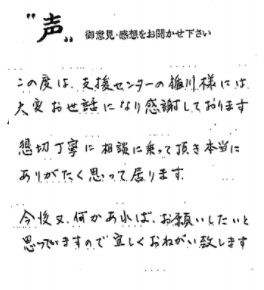 "声" 御意見・感想をお聞かせ下さい
この度は、支援センターの堀川様には
大変お世話になり感謝しております
懇切丁寧に相談に乗って頂き本当に
ありがたく思って居ります
今後又、何かあれば、お願いしたいと
思っていますので宜しくおねがい致します